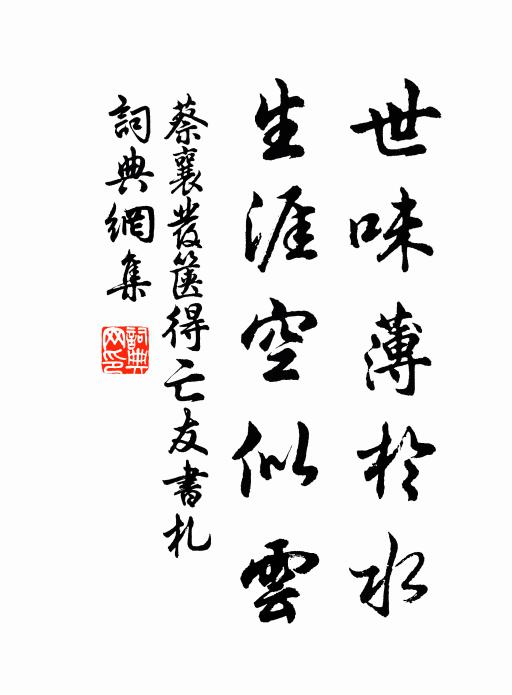 世味薄於水
生涯空似雲
蔡襄發篋得亡友書札
詞典網集
詞典網印